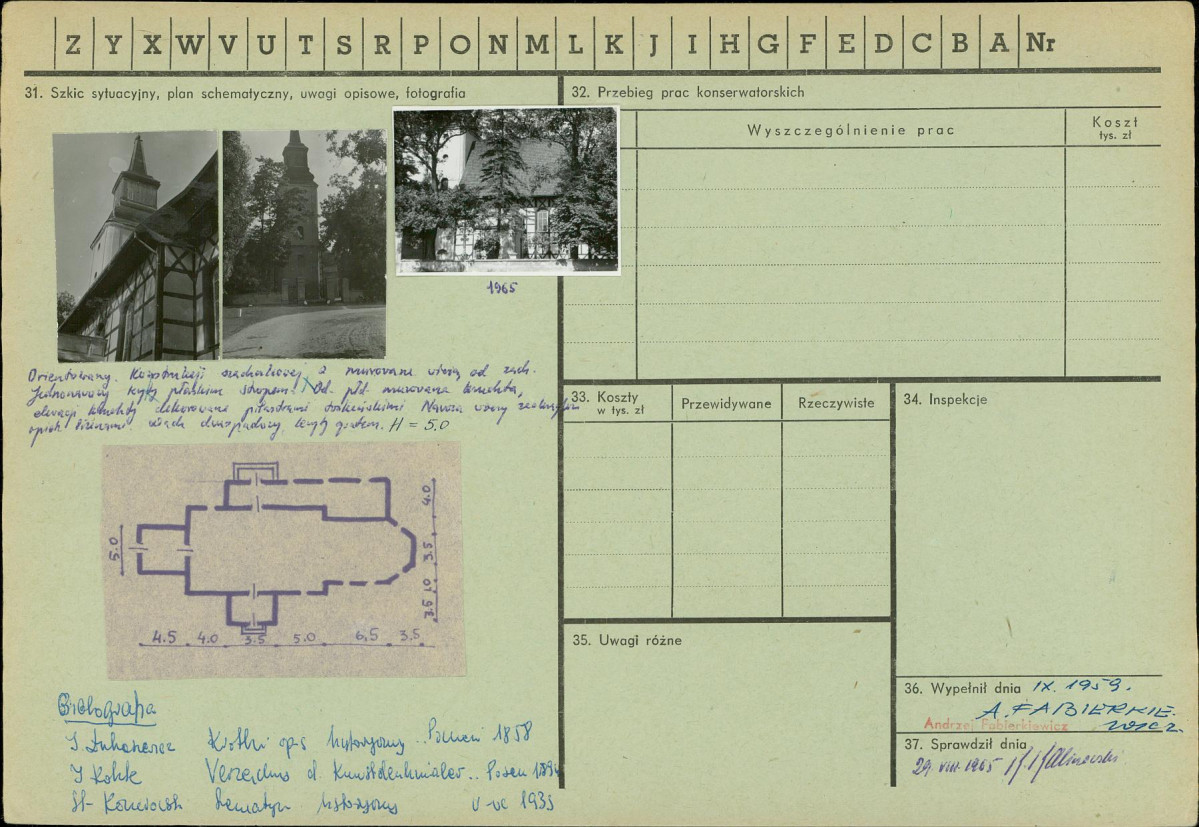 Z Y X W V U T S R P O N M L K J I H G F E D C B A Nr
31. Szkic sytuacyjny, plan schematyczny, uwagi opisowe, fotografia
1965
Orientowany. Konstrukcji szachulcowej z murowaną wieżą od zach.
Jednonawowy kryty płaskim stropem. Od. płd. murowana kruchta,
elewacje kruchty dekorowane pilastrami toskańskimi Nawa
dach dwuspadowy kryty H = 5,0
5.0
4.0
3.5
1.0
3.5
4.5 4.0 3.5 5.0 6,5 3.5
Bibliografia
J. Łukaszewicz Krótki opis historyczny .. Poznań 1858
J Kohte Verzeichnis d. Kunstdenkmäler .. Posen 1896
historyczny 1935
32. Przebieg prac konserwatorskich
Wyszczególnienie prac
Koszt
tys. zł
33. Koszty
w tys. zł
Przewidywane
Rzeczywiste
34. Inspekcje
35. Uwagi różne
36. Wypełnił dnia IX. 1959.
A. FABIERKIE-
WICZ.
Andrzej Fabierkiewicz
37. Sprawdził dnia
29. VIII. 1965